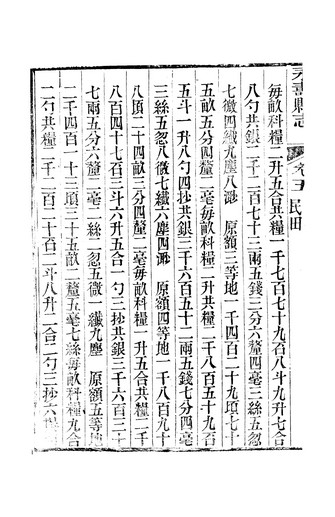 元壽縣志 卷五 民田
每畝科糧二升五合共糧一千七百七十九石八斗九升七合
八勺共銀二千二百七十三兩五錢三分六釐四毫三絲五忽
七微四纖九塵八渺 原額三等地一千四百二十九頃七十
五畝五分四釐二毫每畝科糧二升共糧二千八百五十九石
五斗一升八勺四抄共銀三千六百五十二兩五錢七分四毫
三絲五忽八微七纖六塵四渺 原額四等地一千八百九十
八頃二十四畝三分四釐二毫每畝科糧一升五合共糧二千
八百四十七石三斗六升五合一勺三抄共銀三千六百三十
七兩五分六釐二毫二絲二忽五微一纖九塵 原額五等地
二千四百一十三頃三十五畝二釐五毫七絲每畝科糧九合
二勺共糧二千二百二十石二斗八升二合二勺三抄六